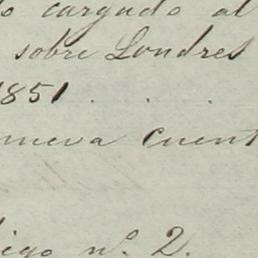 o cargado al
sobre Londres
1851 . . .
nueva cuent
igo nº. 2.